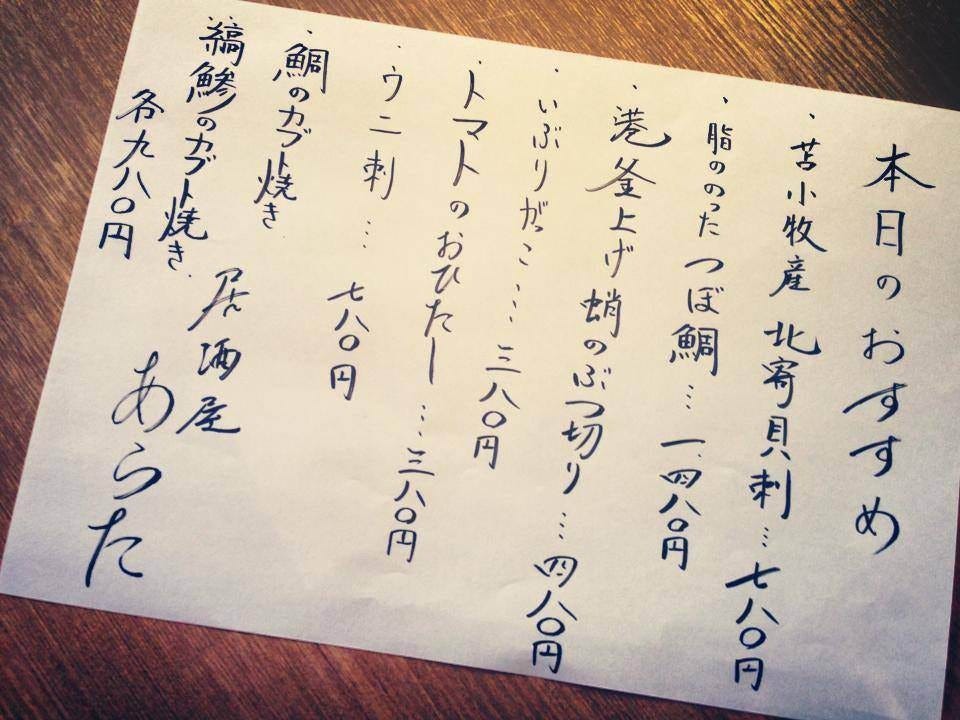 本日のおすすめ
・苫小牧産 北寄貝刺…七八〇円
・脂ののったつぼ鯛…一、四八〇円
・港釜上げ蛸のぶつ切り…四八〇円
・いぶりがっこ…三八〇円
・トマトのおひたし…三八〇円
・ウニ刺…七八〇円
・鯛のカブト焼き
・縞鯵のカブト焼き
各九八〇円
居酒屋
あらた